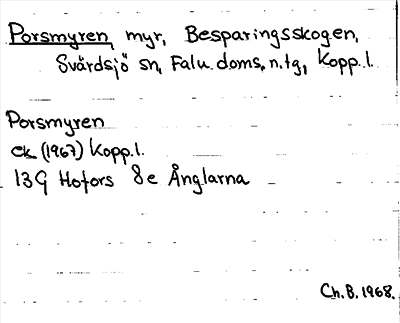 Porsmyren, myr, Besparingsskogen,
Svärdsjö sn, Falu doms. n. tg, Kopp. l.
Porsmyren
ek (1967) Kopp. l.
13G Hofors 8e Änglarna
Ch. B. 1968.